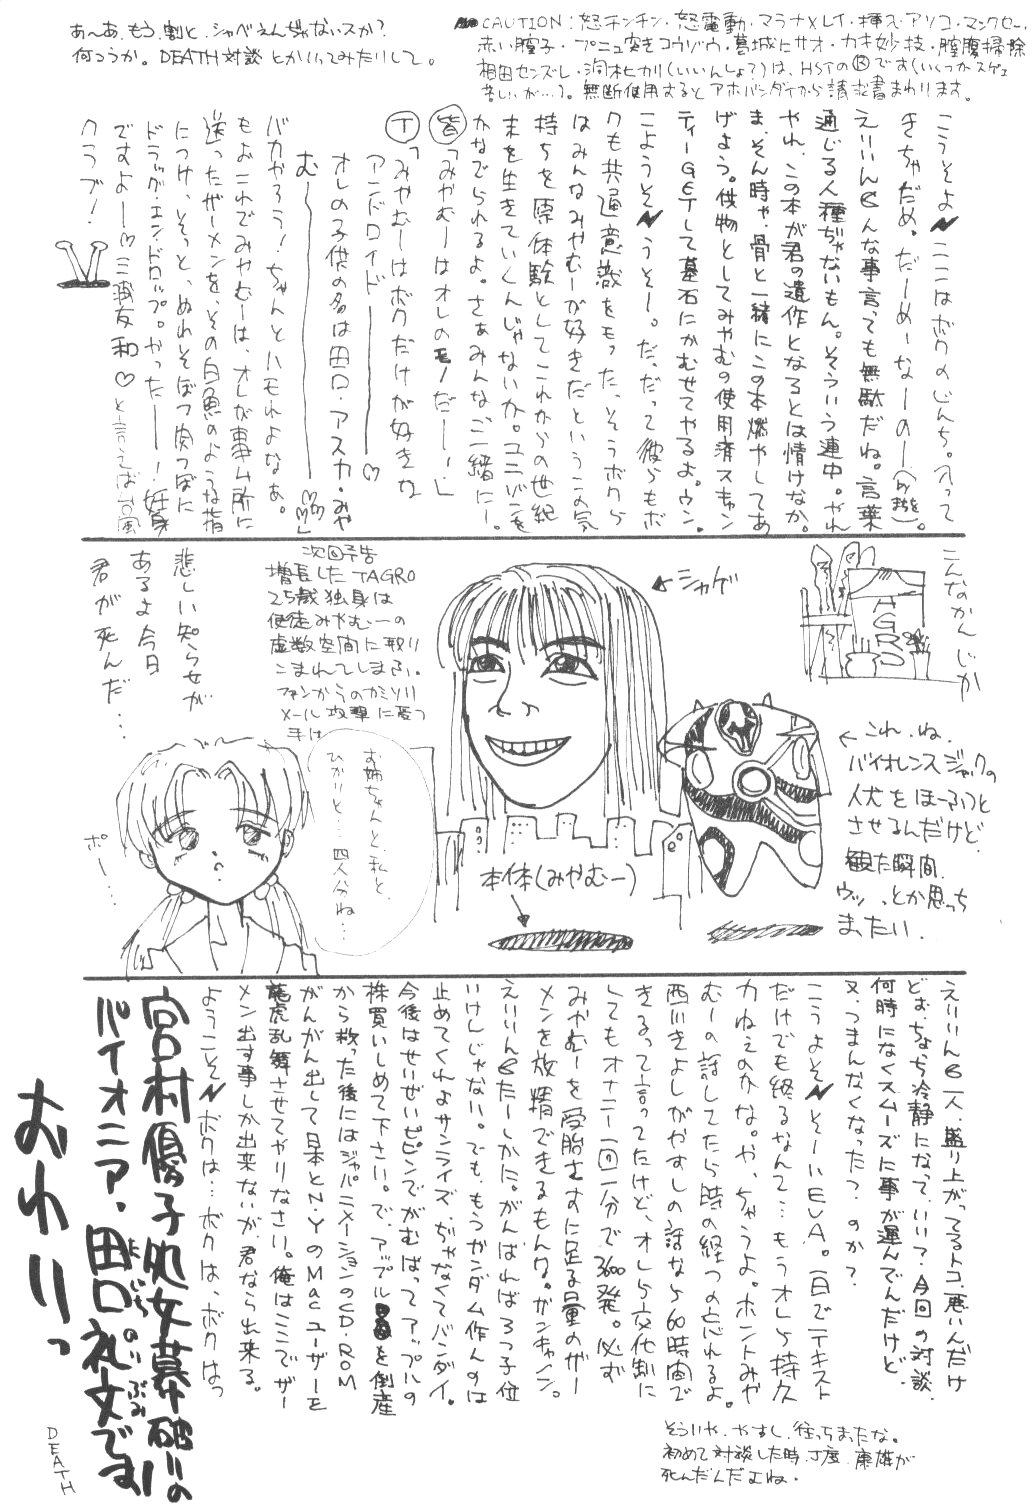 あ〜あ、もう、割と、シャベえんぢゃないスか?
何つうか。DEATH対談とかいってみたりして。
CAUTION:怒チンチン・怒電動・マラナ×レイ・挿入・アソコ・マンクセー・
赤い膣子・プニュ突きコウゾウ・葛城ニサオ・カキ妙技・膣腹掃除
相田センズレ・洞木ヒカリ(いいんしょ?)は、HSTのⓇです(いくつかスゲェ
苦しいが…)。無断使用するとアホバンダイから請求書まわります。
こうそよ ここはボクのじんち。入って
きちゃだめ。だーめーなーの
えりいん6んな事言っても無駄だね。言葉
通じる人種ぢゃないもん。そういう連中。やれ
やれ、この本が君の遺作となるとは情けなか。
ま、そん時ゃ、骨と一緒にこの本燃やしてあ
げよう。供物としてみやむの使用済スキャン
ティーGETして墓石にかむせてやるよ。ウン。
こようそ うそー。だ、だって彼らもボ
クも共通意識をもった、そうボクら
はみんなみやむーが好きだというこの気
持ちを原体験としてこれからの世紀
末を生きていくんじゃないか。ユニゾンを
かなでられるよ。さぁみんなご一緒にー。
皆「みやむーはオレのモノだーー!」
T「みやむーはボクだけが好きな
アンドロイドーーー♡
オレの子供の名は田口・アスカ・みや
むーーーーー♡♡♡」
バカやろう!ちゃんとハモれよなぁ。
もぉこれでみやむーは、オレが事ム所に
送ったザーメンを、その白魚のような指
につけ、そっと、ぬれそぼつ肉つぼに
ドラッグ・エンド・ドロップ。やったーー!妊娠
ですよーー♡三波友和♡と言えば台風
クラブ!
こんなかんじか
シャゲ
これ、ね、
バイオレンスジャックの
人犬をほーふつと
させるんだけど、
観た瞬間、
ウッ…っとか思っち
まったい。
本体(みやむー)
次回予告
増長したTAGRO
25歳独身は
使徒みやむーの
虚数空間に取り
こまれてしまふ。
ファンからのカミソリ
メール攻撃に憂つ
手は
お姉ちゃんと、私と、
ひかりと…四人分ね…
悲しい知らせが
あるよ今日
君が死んだ…
ポー…
えりいん6一人、盛り上がってるトコ悪いんだけ
ど、お、ちょち冷静になって、いい?今回の対談、
何時になくスムーズに事が運んでんだけど、
又、つまんなくなった?のか?
こうよそ そーいEVA。一日でテキスト
だけでも終るなんて…もうオレら持久
力ねぇのかな。や、ちゃうよ。ホントみや
むーの話してたら時の経つの忘れるよ。
西川きよしがやすしの話なら60時間で
きるって言ってたけど、オレら交代制に
してもオナニー一回一分で3600発。必ず
みやむーを受胎さすに足る量のザー
メンを放精できるもんな。ガンキャノン。
えりいん6たーしかにがんばれば3つ子位
いけんじゃない。でも、もうガンダム作んのは
止めてくれよサンライズ、ぢゃなくてバンダイ。
今後はせいぜいピピンでがむばってアップルの
株買いしめて下さい。で、アップルを倒産
から救った後にはジャパニメーションのCD-ROM
がんがん出して日本とN・YのMacユーザーを
龍虎乱舞させてやりなさい。俺はここでザー
メン出す事しか出来ないが、君なら出来る。
ようこそ ボクは…ボクは、ボクはっ
そういや、やすし、往っちまったな。
初めて対談した時、丁度、康雄が
死んだんだよね。
宮村優子処女墓破りの
パイオニア、田口礼文です
おわりっ
DEATH